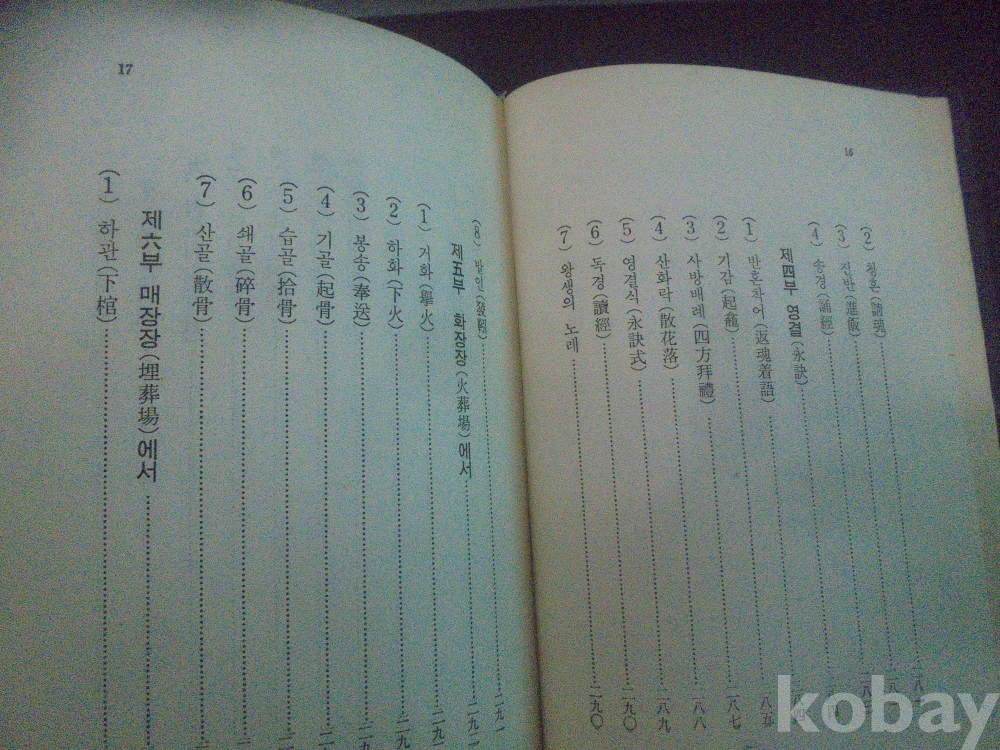 16
(2) 청혼(請魂)
(3) 진반(進飯)
(4) 송경(誦經)
제四부 영결(永訣)
(1) 반혼착어(返魂着語)
(2) 기감(起龕) 二八七
(3) 사방배례(四方拜禮) 二八八
(4) 산화락(散花落) 二八九
(5) 영결식(永訣式) 二九〇
(6) 독경(讀經) 二九〇
(7) 왕생의 노래
17
(8) 발인(發靷) 二九一
제五부 화장장(火葬場)에서 二九一
(1) 거화(擧火) 二九一
(2) 하화(下火)
(3) 봉송(奉送)
(4) 기골(起骨)
(5) 습골(拾骨)
(6) 쇄골(碎骨)
(7) 산골(散骨)
제六부 매장장(埋葬場)에서
(1) 하관(下棺)
kobay